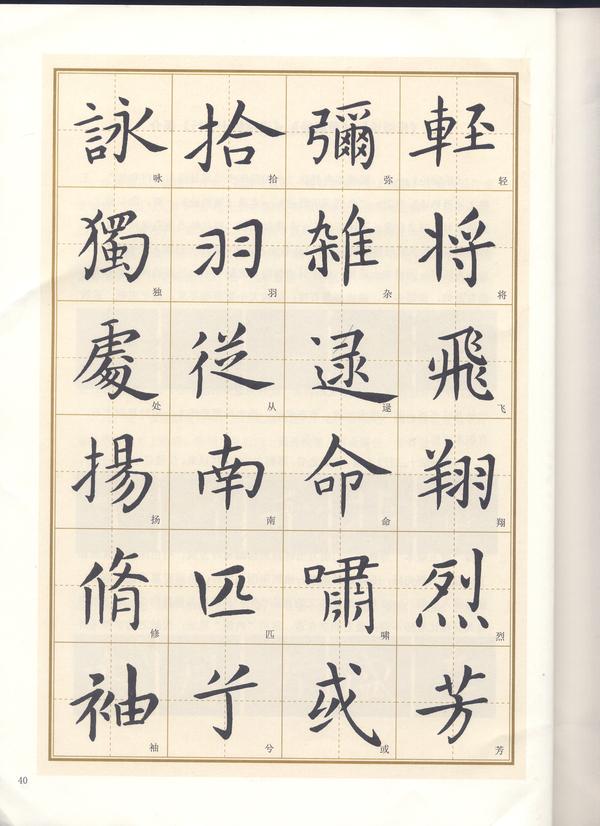 輕 轻 将 将 飛 飞 翔 翔 烈 烈 芳 芳
彌 弥 雑 杂 逯 逯 命 命 嘯 啸 或 或
拾 拾 羽 羽 従 从 南 南 匹 匹 兮 兮
詠 咏 獨 独 處 处 揚 扬 脩 修 袖 袖
40